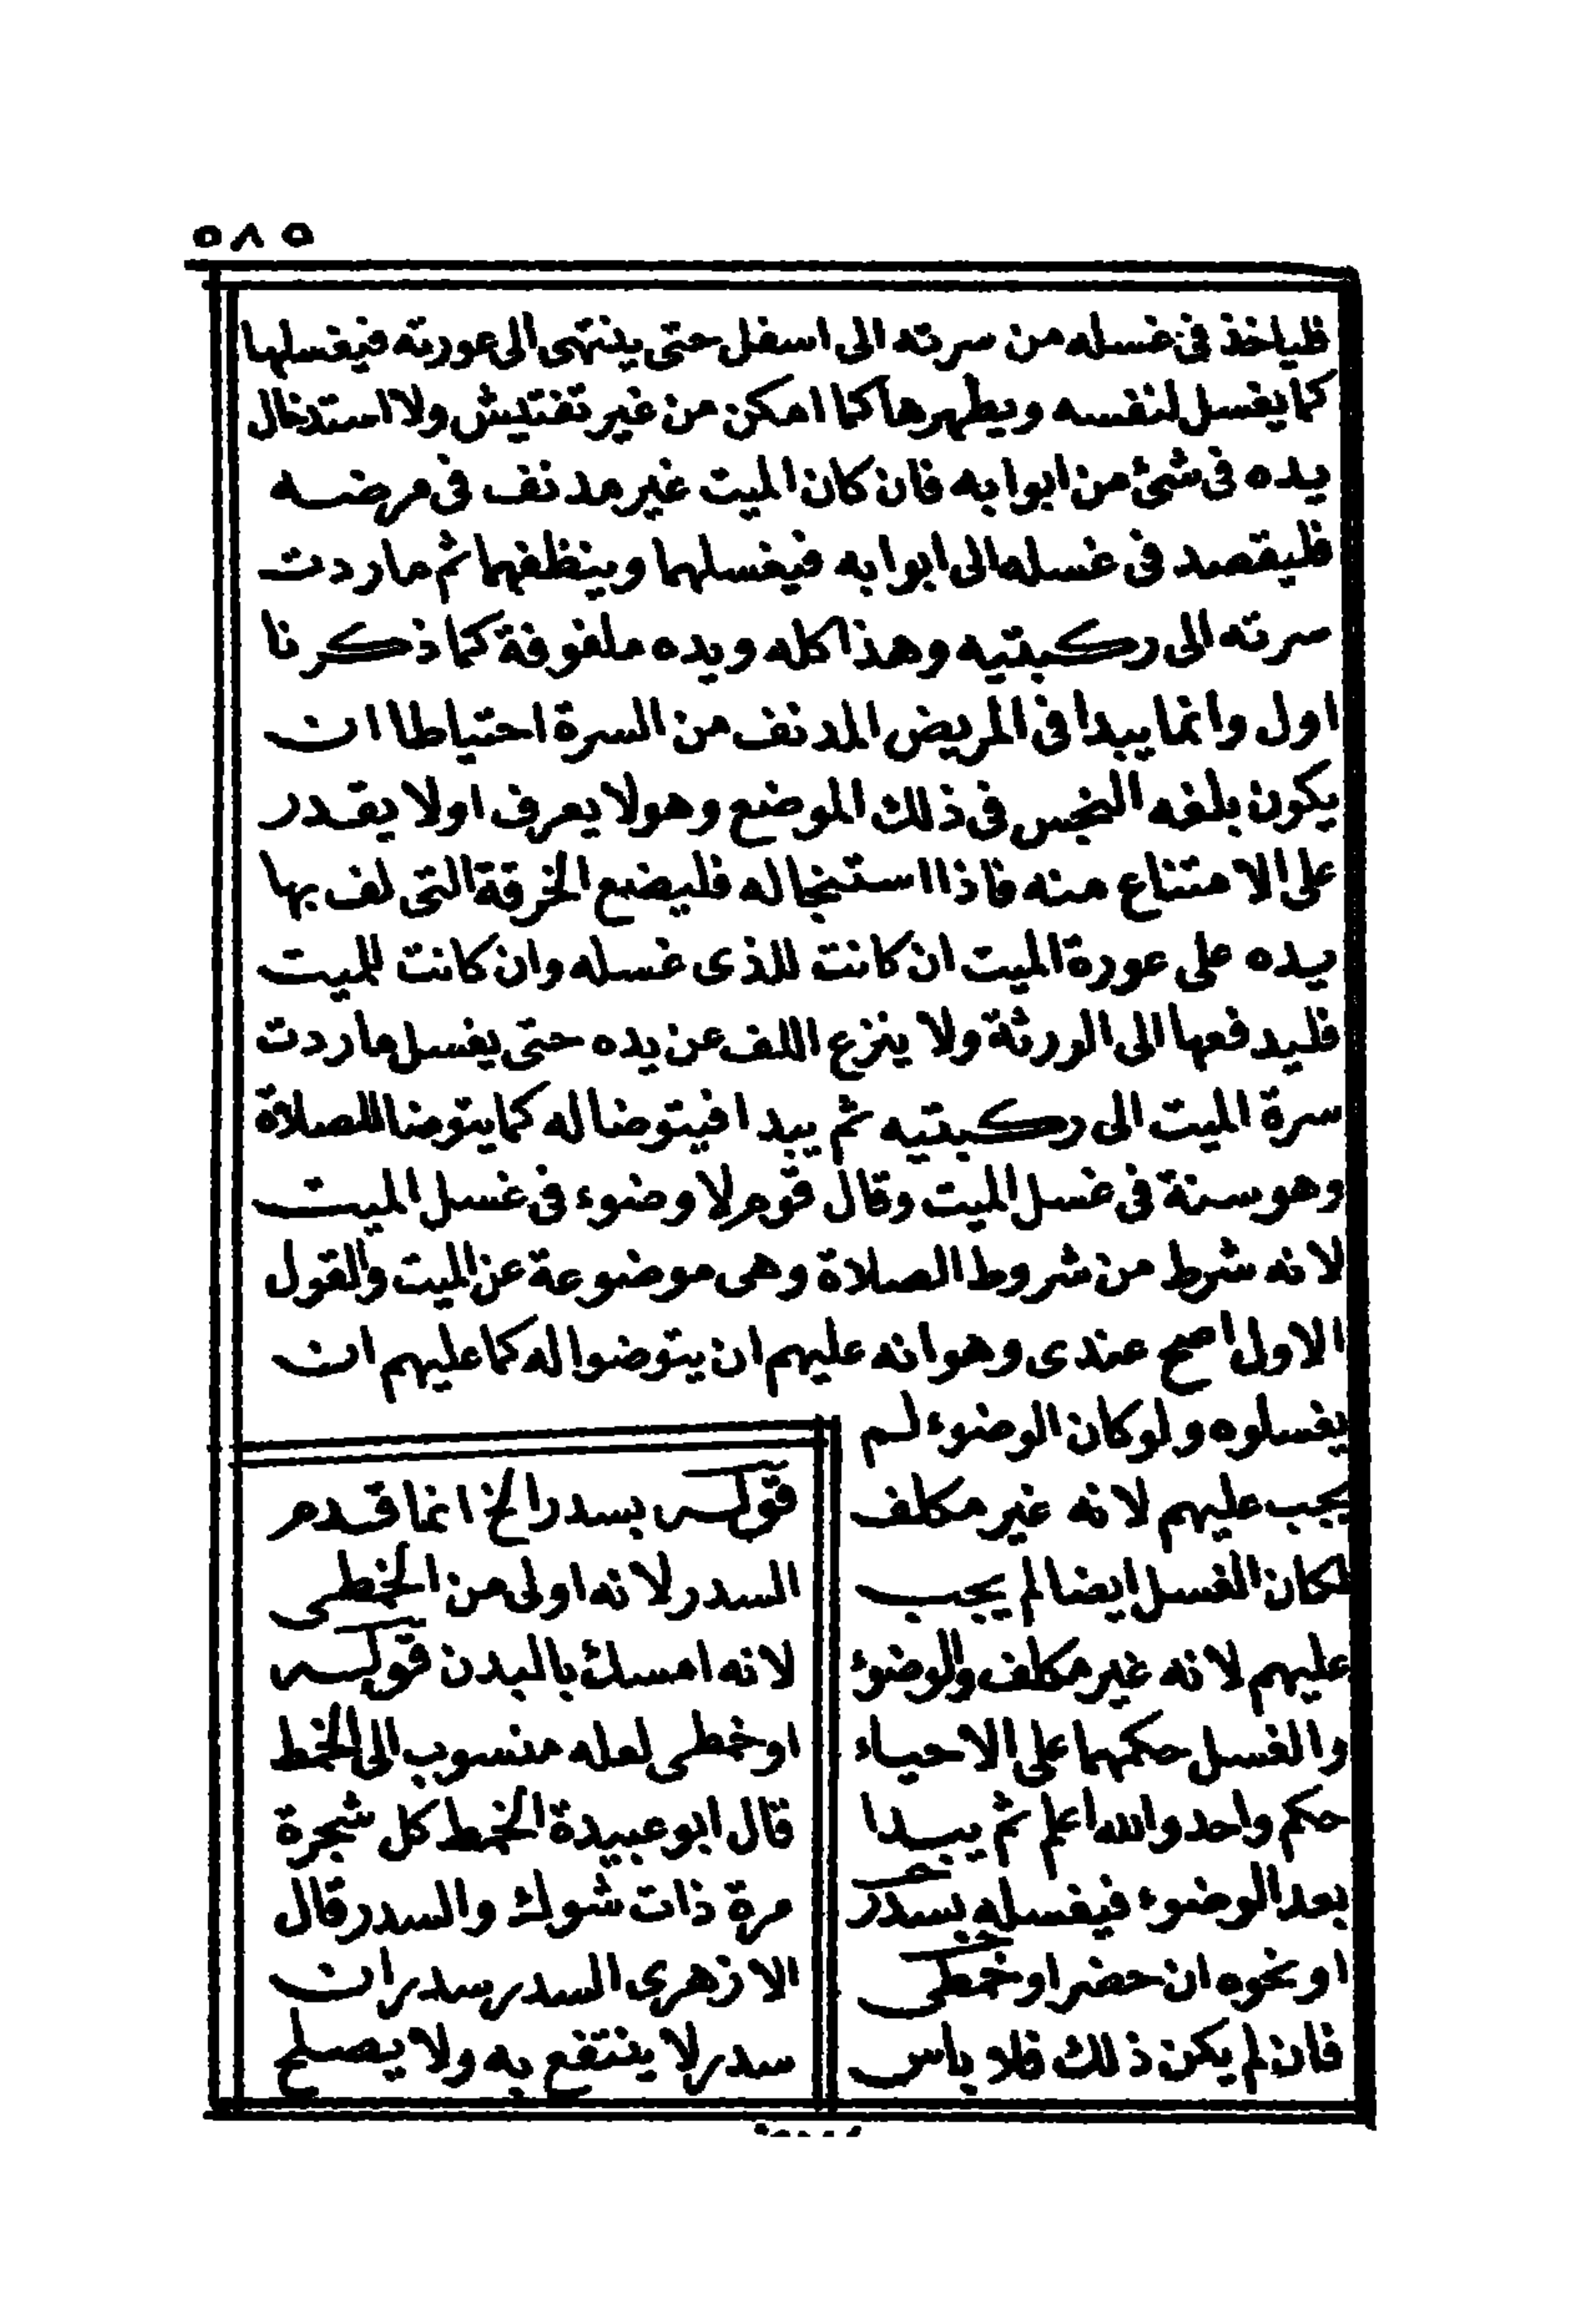 ٥٨٥
فلياخذ فى غسله من سرته الى اسفل حتى ينتهى الى عورته فيغسلها
كما يغسل لنفسه ويطهرها كما امكن من غير تفتيش ولا استدخال
يده فى شئ من ابوابه فان كان الميت غير مدنف فى مرضه
فليقصد فى غسله الى ابوابه فيغسلها وينظفها ثم ماردت
سرته الى ركبتيه وهذا كله ويده ملفوفة كما ذكرنا
اول وانما يبدا فى المريض المدنف من السرة احتياطا ان
يكون بلغه النجس فى ذلك الموضع وهو لا يعرف او لا يقدر
على الامتناع منه فاذا استنجا له فليضع الخرقة التى لف بها
يده على عورة الميت ان كانت للذى غسله وان كانت للميت
فليدفعها الى الورثة ولا ينزع اللف عن يده حتى يغسل ماردت
سرة الميت الى ركبتيه ثم يبدا فيتوضا له كما يتوضا للصلاة
وهو سنة فى غسل الميت وقال قوم لا وضوء فى غسل الميت
لانه شرط من شروط الصلاة وهى موضوعة عن الميت والقول
الاول اصح عندى وهو انه عليهم ان يتوضوا له كما عليهم ان
يغسلوه ولو كان الوضوء لم
يجب عليهم لانه غير مكلف
لكان الغسل ايضا لم يجب
عليهم لانه غير مكلف والوضوء
والغسل حكمهما على الاحياء
حكم واحد والله اعلم ثم يبدا
بعد الوضوء فيغسله بسدر
او نحوه ان حضر او خطمى
فان لم يكن ذلك فلا باس
قوله بسدر الخ انما قدم
السدر لانه اولى من الخطمى
لانه امسك بالبدن قوله
او خطمى لعله منسوب الى الخمط
قال ابو عبيدة الخمط كل شجرة
مرة ذات شوك والسدر قال
الازهرى السدر سدران
سدر لا ينتفع به ولا يصلح